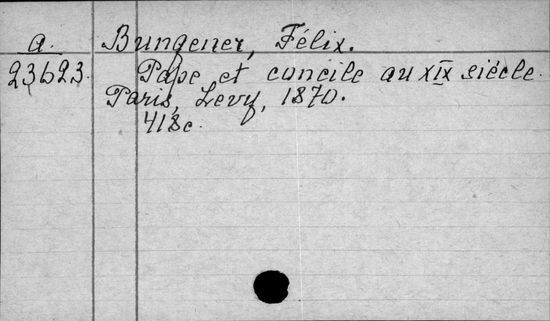 a. Bungener, Félix.
23623. Pape et concile au XIX siècle.
Paris, Levy, 1870.
418c.